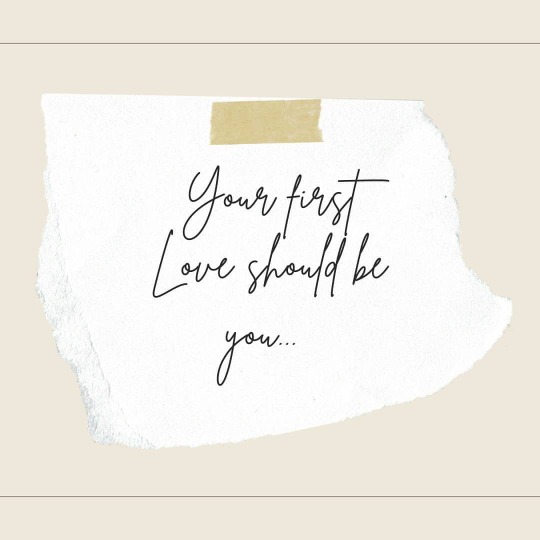 Your first
Love should be
you...